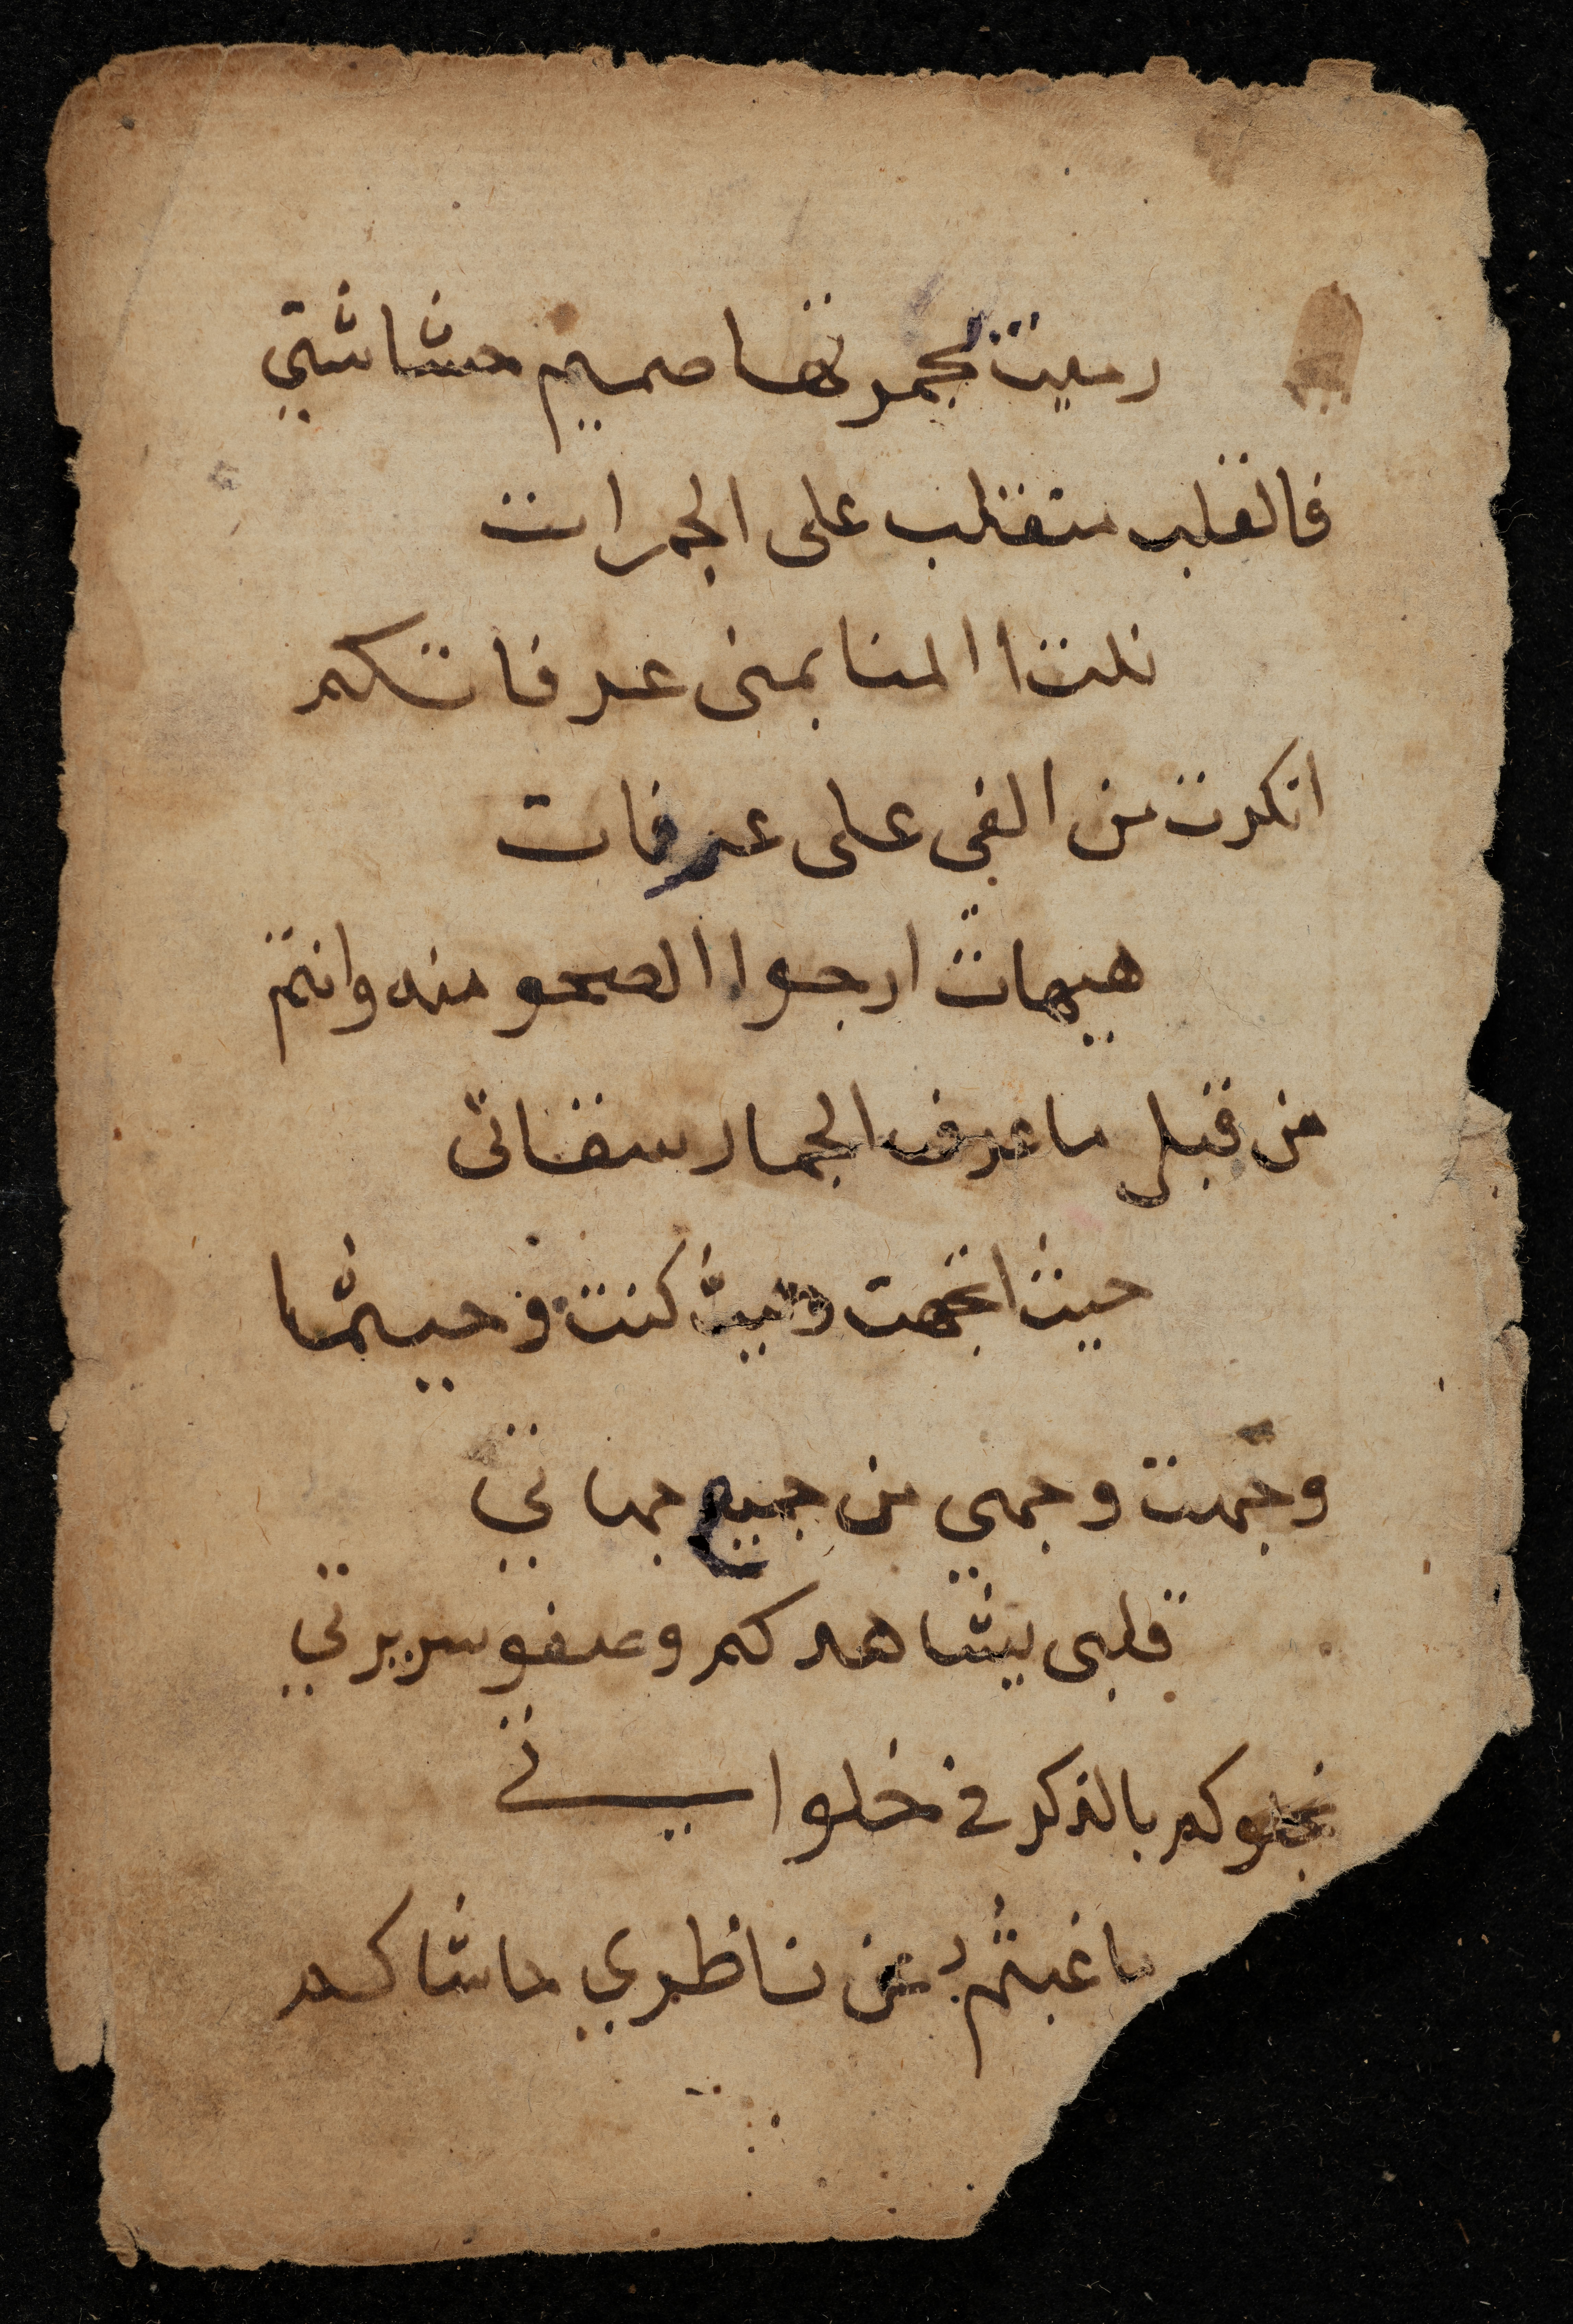 رميت بجمرتها صميم حشاشتي
فالقلب متقلب على الجمرات
نلت المنا بمنى عرفاتكم
انكرت من الفي على عرفات
هيهات ارجوا الصحو منه وانتم
من قبل ما عرف الجمار سقاتى
حيث اتجهت وحيث كنت وحيثما
وجهت وجهي من جميع جهاتي
قلبى يشاهدكم وصفو سريرتي
كم بالذكر في خلواتي
ما غبتم عن ناظري حاشاكم